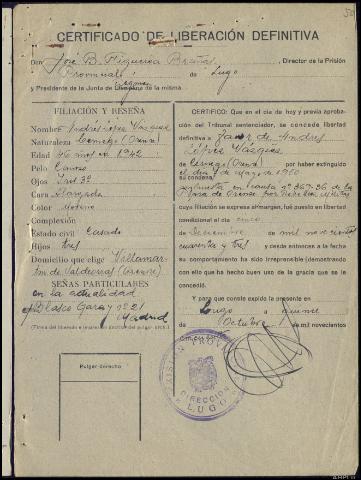 CERTIFICADO DE LIBERACIÓN DEFINITIVA
Don José B. Figueira Braña, Director de la Prisión
Provincial de Lugo
y Presidente de la Junta de de la misma
FILIACIÓN Y RESEÑA
Nombre Andrés López Vázquez
Naturaleza (Orense)
Edad 46 en 1942
Pelo Canoso
Ojos
Cara
Color Moreno
Complexión
Estado civil Casado
Hijos tres
Domicilio que elige Villamar-
tín de Valdeorras (Orense)
SEÑAS PARTICULARES
en la actualidad
Blasco Garay nº 21
Madrid
(Firma del liberado e impresión dactilar del pulgar dch.)
Pulgar derecho
CERTIFICO: Que en el día de hoy y previa aproba-
ción del Tribunal sentenciador, se concede libertad
definitiva a favor de Andrés
López Vázquez
de (Orense) por haber extinguido
el día de marzo 1950
su condena
impuesta en causa nº 367-36 de la
Plaza de Orense por
cuya filiación se expresa al margen, fué puesto en libertad
condicional el cinco
de Diciembre de mil novecientos
cuarenta y tres y desde entonces a la fecha
su comportamiento ha sido irreprensible demostrando
con ello que ha hecho buen uso de la gracia que se le
concedió.
Y para que conste expido la presente en
Lugo a quince
de Octubre de mil novecientos
PRISIÓN
DIRECCIÓN
LUGO